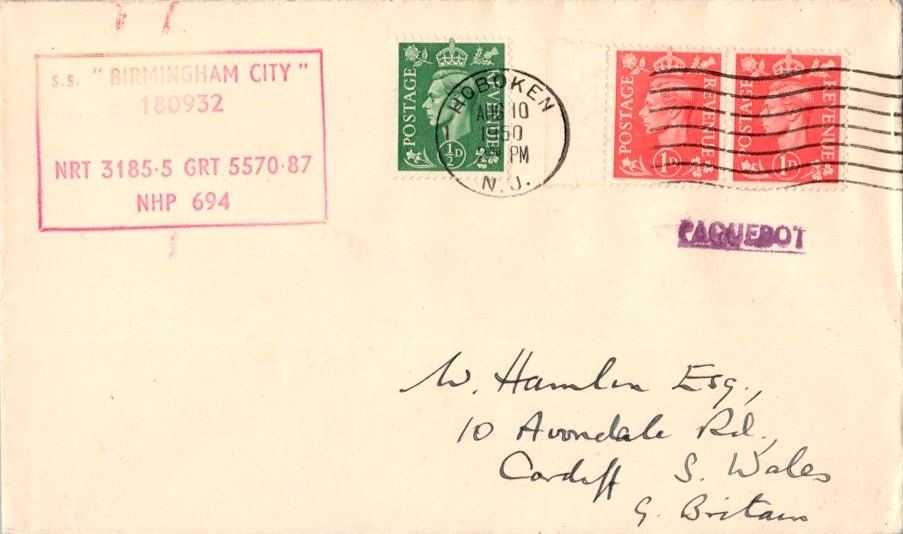 s.s. "BIRMINGHAM CITY"
180932
NRT 3185·5 GRT 5570·87
NHP 694
POSTAGE REVENUE
½D
HOBOKEN
AUG 10
1950
PM
N.J.
1
POSTAGE REVENUE
1D
POSTAGE REVENUE
1D
PAQUEBOT
W. Hamlin Esq.,
10 Avondale Rd.,
Cardiff S. Wales
G. Britain